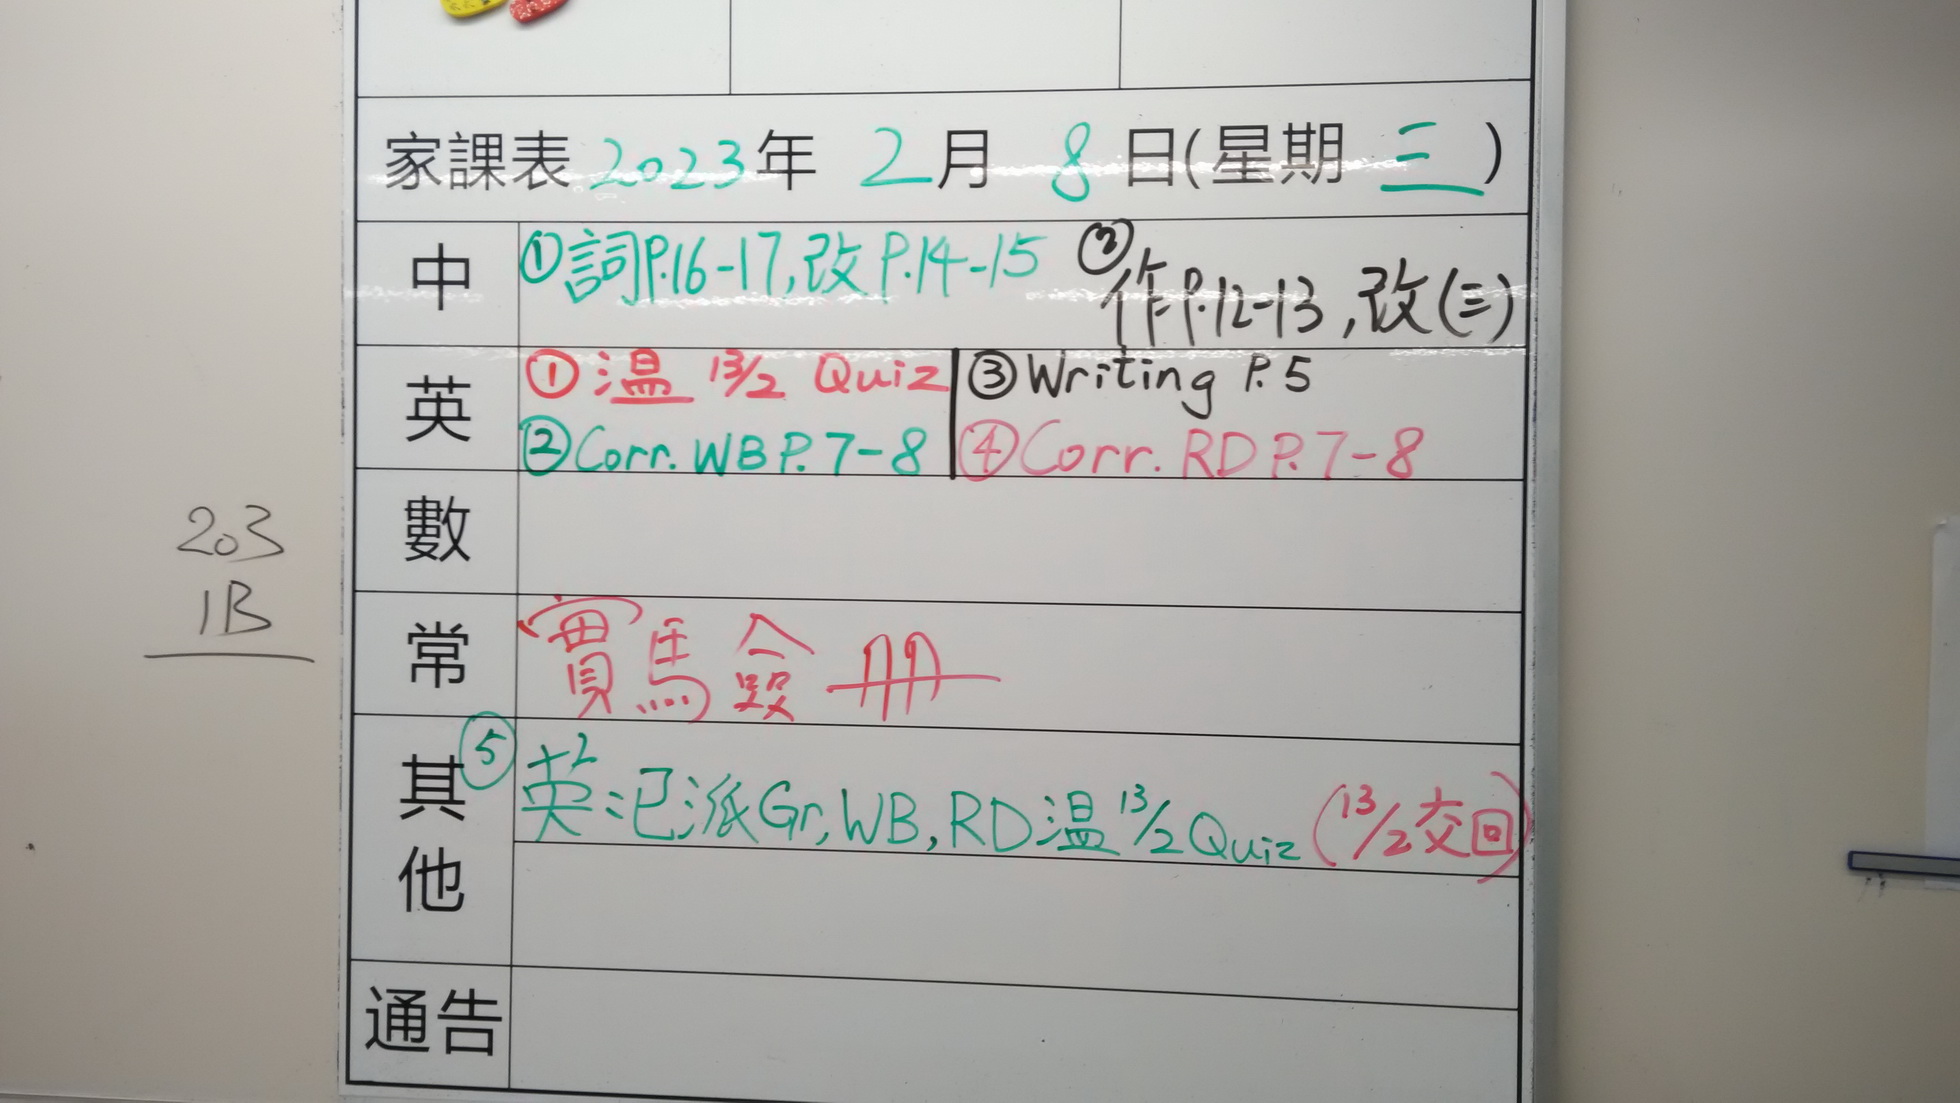 家課表 2023年 2月 8日(星期 三)
中 ①詞P.16-17,改P.14-15 ②作P.12-13,改(三)
英 ①温 13/2 Quiz ③Writing P.5
②Corr. WB P.7-8 ④Corr. RD P.7-8
數
常 實馬僉冊
其他 ⑤ 英:已派Gr, WB, RD温13/2 Quiz (13/2交回)
通告
203
1B